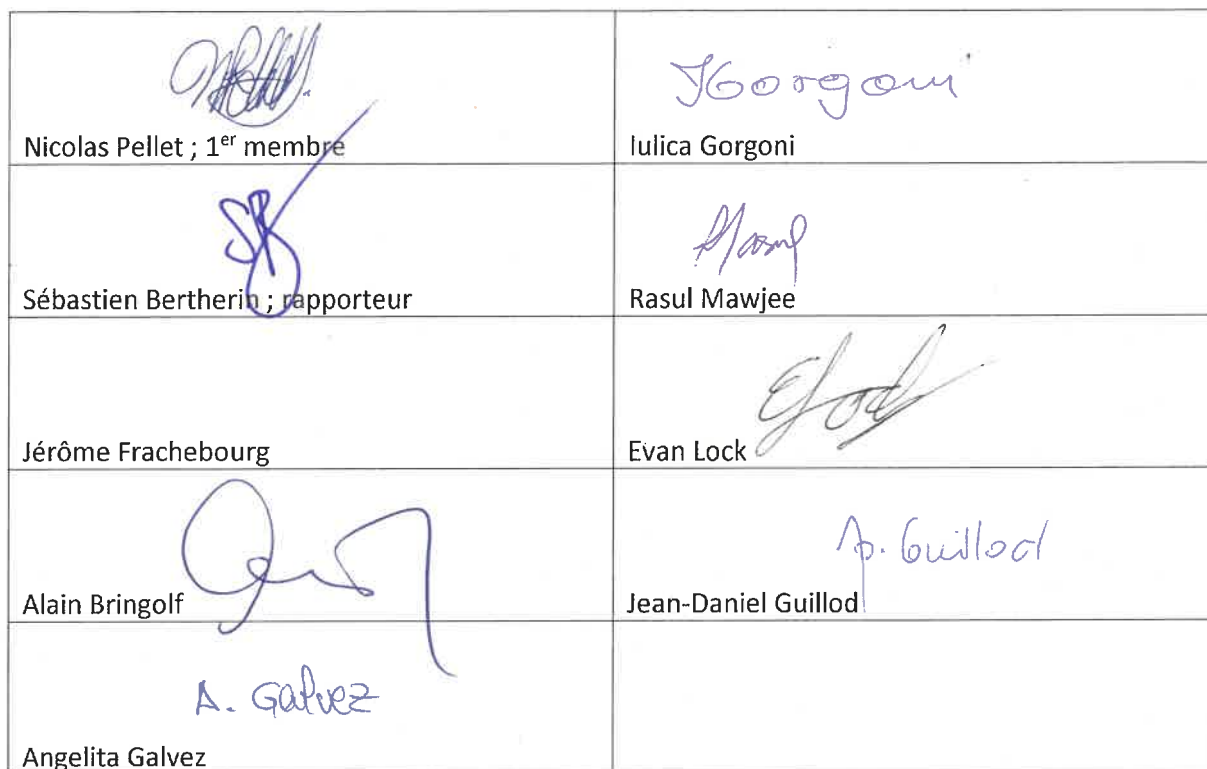 Nicolas Pellet ; 1er membre
IGorgoni
Iulica Gorgoni
Sébastien Bertherin ; rapporteur
Rasul Mawjee
Jérôme Frachebourg
Evan Lock
Alain Bringolf
Guillod
Jean-Daniel Guillod
A. Galvez
Angelita Galvez